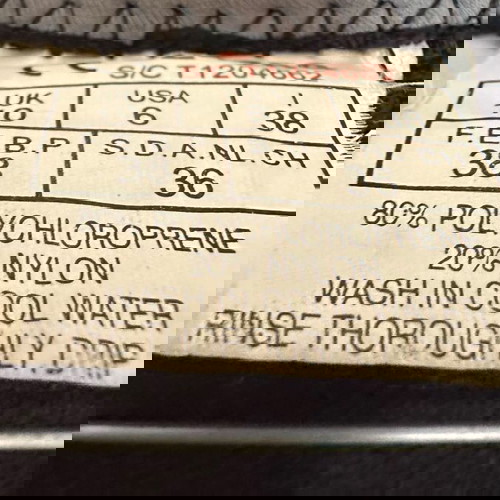 SIC T1204662
UK USA I
6 38
F.E.B.P S.D.A.NL.CH
38 36
80% POLYCHLOROPRENE
20% NYLON
WASH IN COOL WATER
RINSE THOROUGHLY DRIP